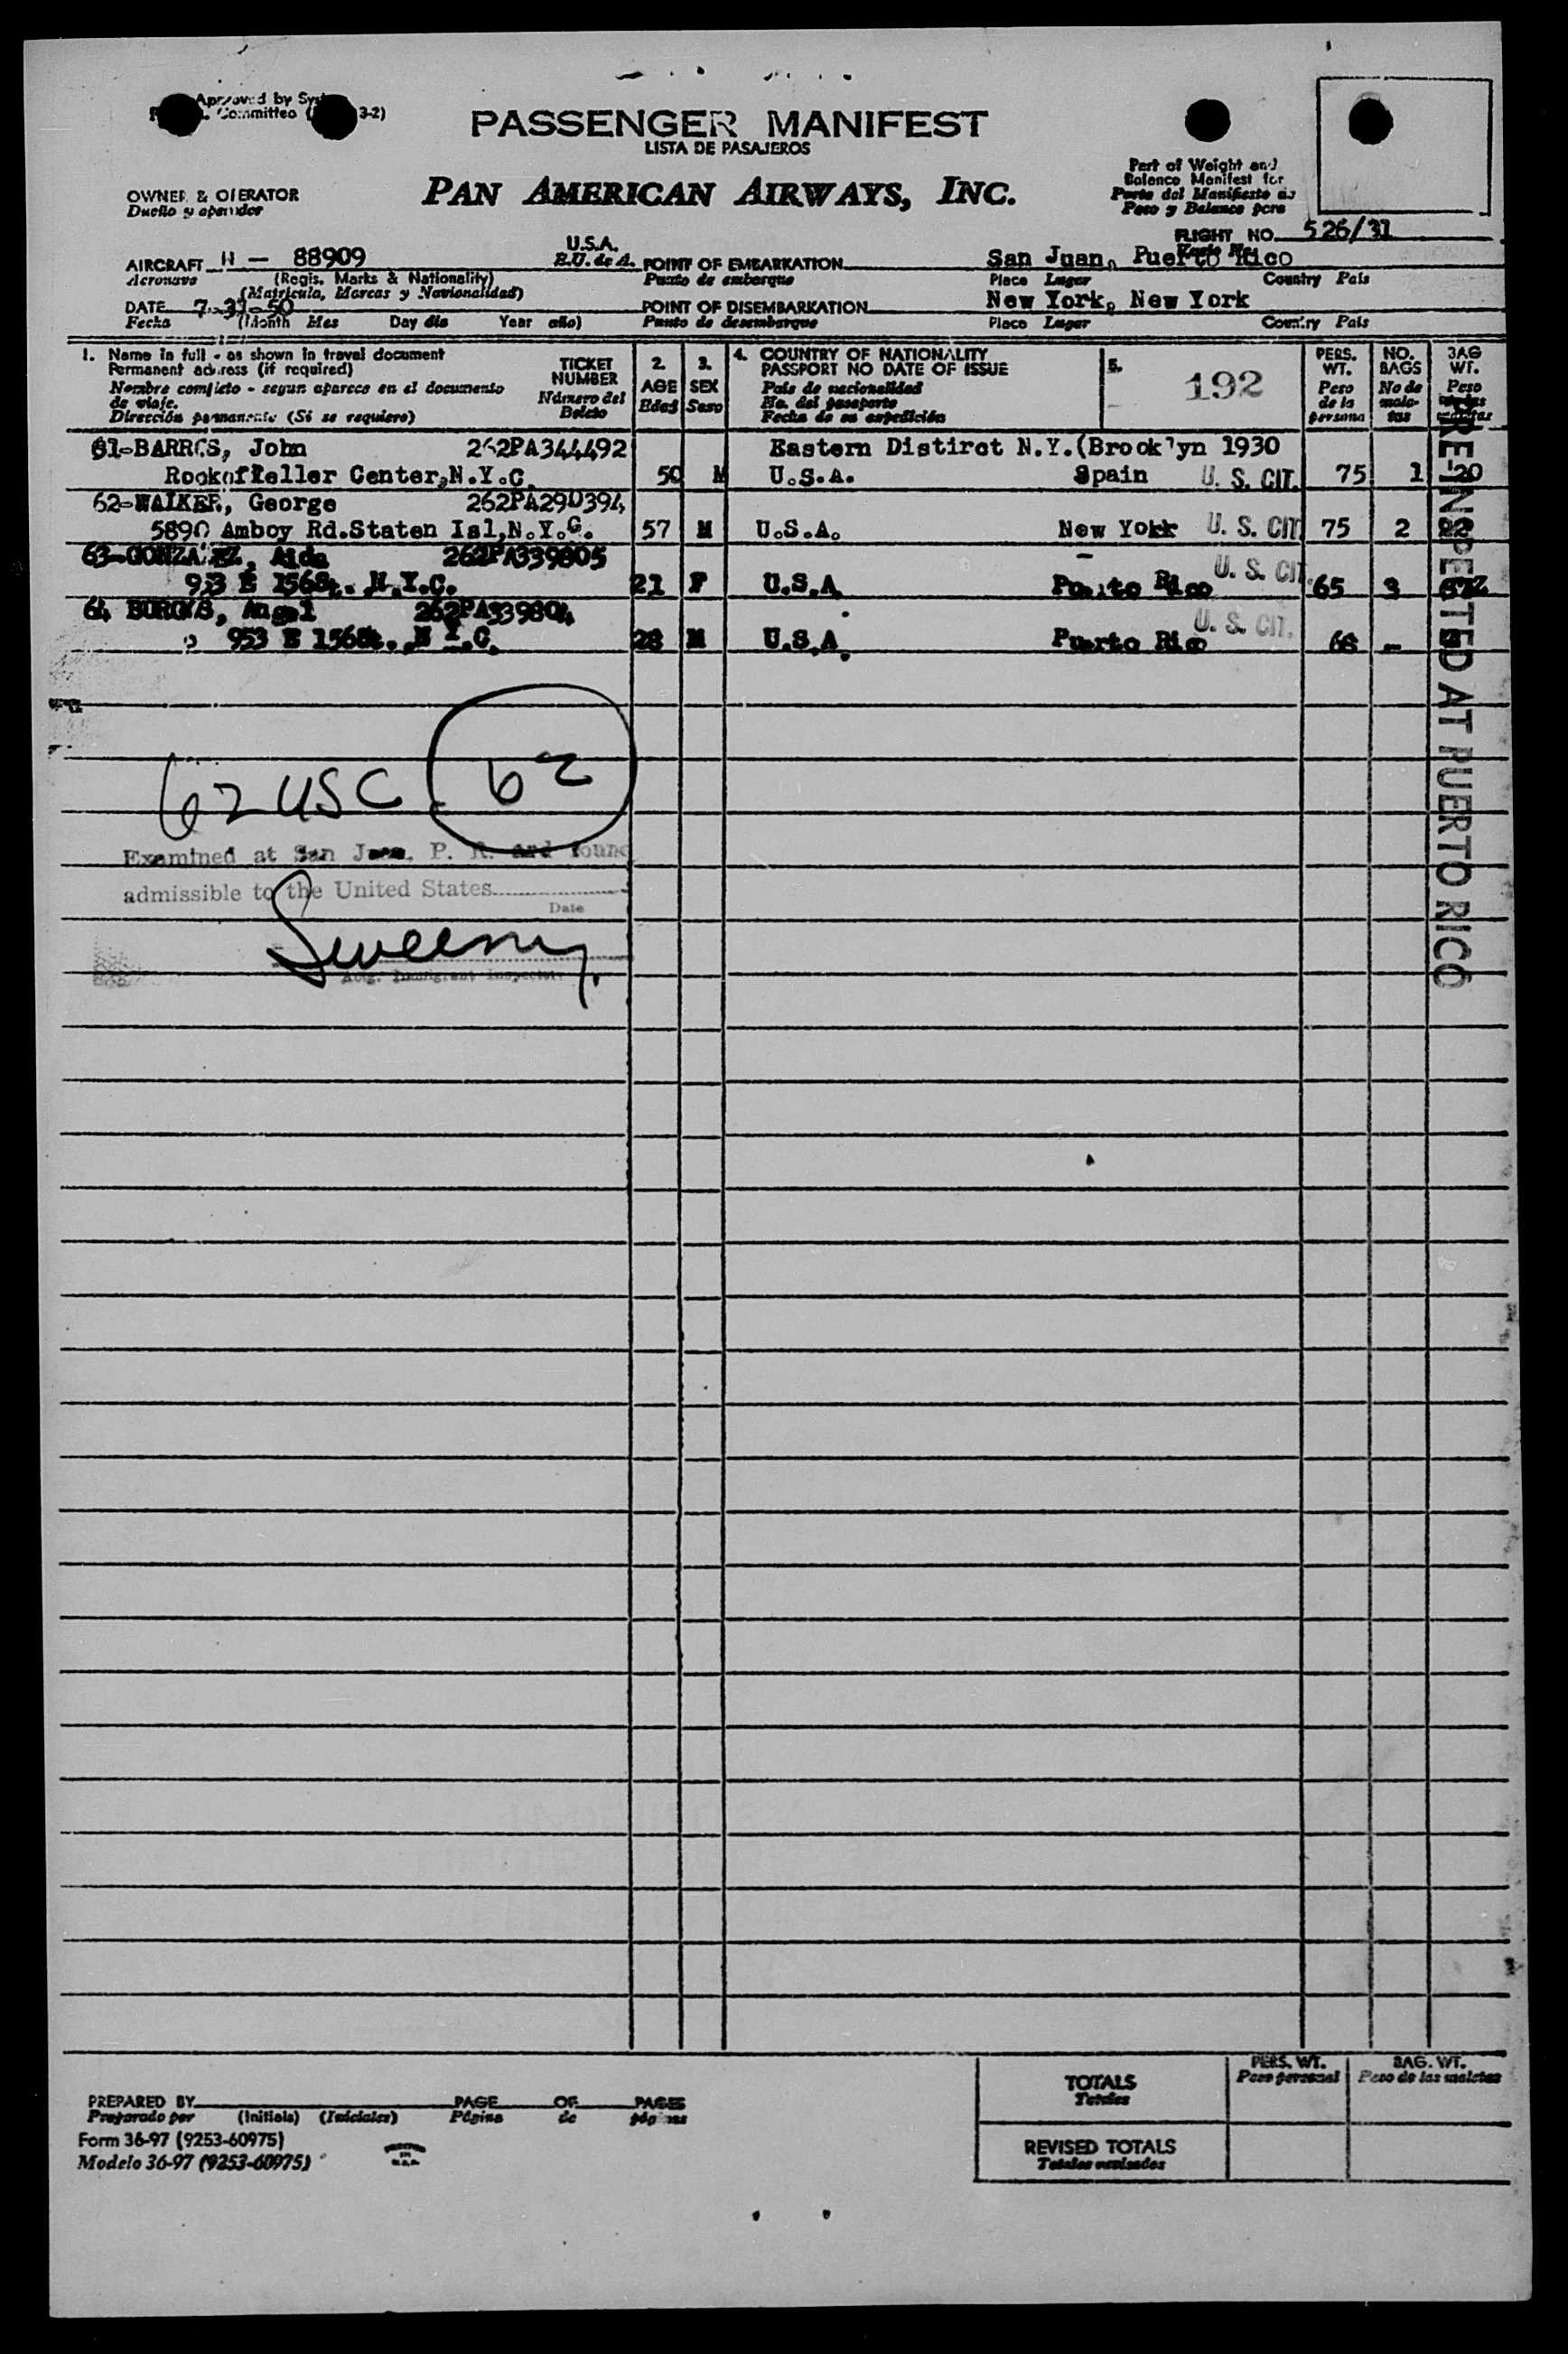 Approved by
Committee 3-2)
PASSENGER MANIFEST
LISTA DE PASAJEROS
OWNER & OPERATOR
Dueño y operador
PAN AMERICAN AIRWAYS, INC.
Part of Weight and
Balance Manifest for
Parte del Manifiesto de
Peso y Balance para
FLIGHT NO. 526/31
AIRCRAFT N - 88909 U.S.A. POINT OF EMBARKATION San Juan, Puerto Rico
Aeronave (Regis. Marks & Nationality) E.U. de A. Punto de embarque Place Lugar Country País
(Matrícula, Marcas y Nacionalidad)
DATE 7-31-50 POINT OF DISEMBARKATION New York, New York
Fecha (Month Mes Day día Year año) Punto de desembarque Place Lugar Country País
1. Name in full - as shown in travel document
Permanent address (if required)
Nombre completo - segun aparece en el documento
de viaje.
Dirección permanente (Si se requiere)
TICKET
NUMBER
Número del
Boleto
2.
AGE
Edad
3.
SEX
Sexo
4. COUNTRY OF NATIONALITY
PASSPORT NO DATE OF ISSUE
País de nacionalidad
No. del pasaporte
Fecha de su expedición
5.
192
PERS.
WT.
Peso
de la
persona
NO.
BAGS
No de
male-
tas
BAG
WT.
Peso
61-BARROS, John 262PA344492 Eastern Distirct N.Y.(Brooklyn 1930
Rockefeller Center,N.Y.C. 50 M U.S.A. Spain U. S. CIT. 75 1 20
62-WALKER, George 262PA290394
5890 Amboy Rd.Staten Isl,N.Y.C. 57 M U.S.A. New York U. S. CIT 75 2 22
63-GONZALEZ, Aida 262PA339805
953 E 156St. N.Y.C. 21 F U.S.A. Puerto Rico U. S. CIT 65 3
64 BURGOS, Angel 262PA339804
953 E 156St., N.Y.C. 28 M U.S.A. Puerto Rico U. S. CIT. 68 -
PRE-INSPECTED AT PUERTO RICO
62 USC 62
Examined at San Juan, P. R. and found
admissible to the United States
Date
Sweeney
Actg. Immigrant Inspector
TOTALS
Totales
PERS. WT.
Peso personal
BAG. WT.
Peso de las maletas
REVISED TOTALS
Totales revisados
PREPARED BY PAGE OF PAGES
Preparado por (Initials) (Iniciales) Página de páginas
Form 36-97 (9253-60975)
Modelo 36-97 (9253-60975)
PRINTED
IN
U.S.A.